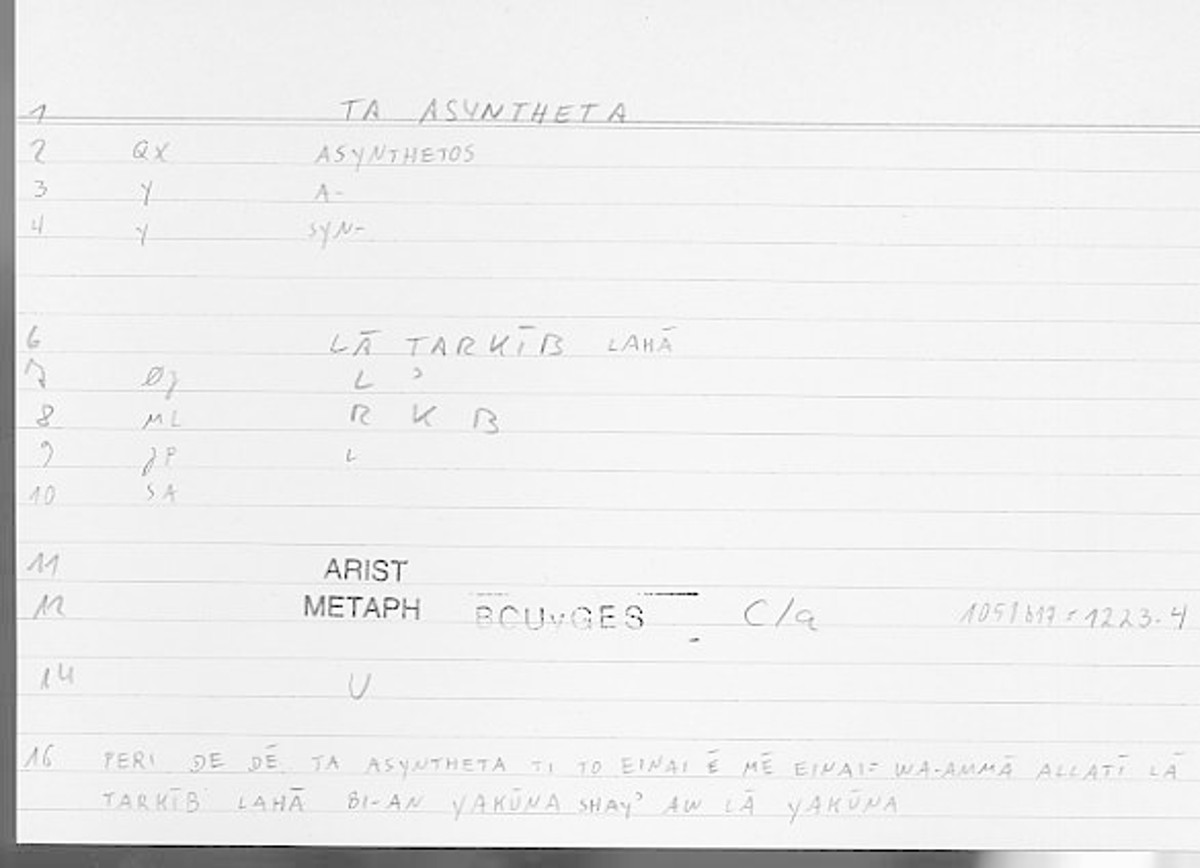 1 TA ASYNTHETA
2 QX ASYNTHETOS
3 Y A-
4 Y SYN-
6 LĀ TARKĪB LAHĀ
7 L ʾ
8 ML R K B
9 L
10 SA
11 ARIST
12 METAPH BOUYGES C/a 1051b17 = 1223.4
14 U
16 PERI DE DĒ TA ASYNTHETA TI TO EINAI Ē MĒ EINAI = WA-AMMĀ ALLATĪ LĀ
TARKĪB LAHĀ BI-AN YAKŪNA SHAYʾ AW LĀ YAKŪNA